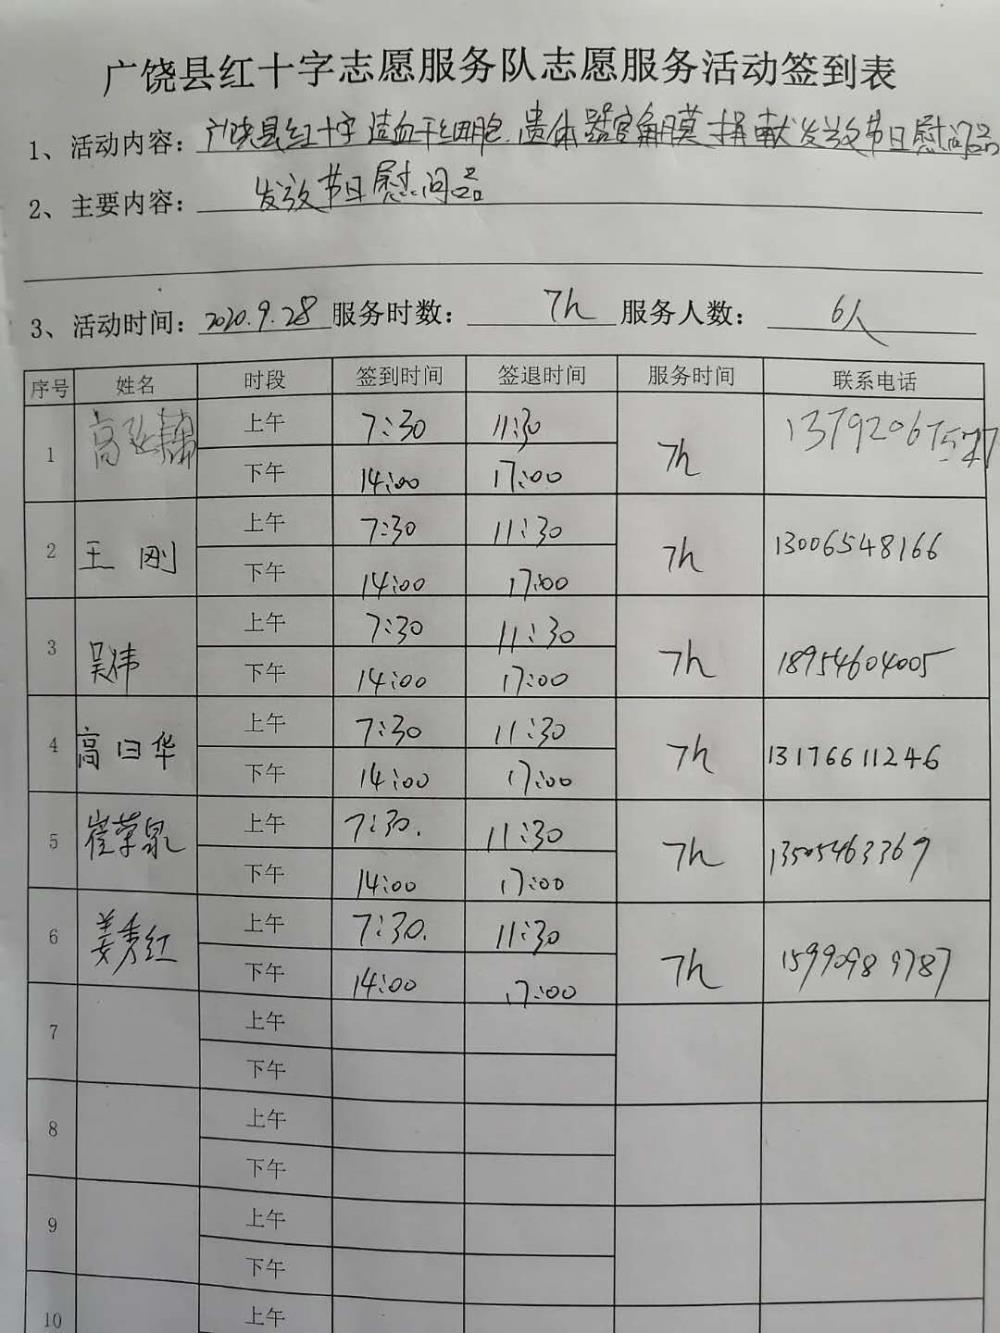 广饶县红十字志愿服务队志愿服务活动签到表
1、活动内容：广饶县红十字造血干细胞.遗体器官角膜捐献发放节日慰问品
2、主要内容：发放节日慰问品
3、活动时间：2020.9.28 服务时数：7h 服务人数：6人
序号 姓名 时段 签到时间 签退时间 服务时间 联系电话
1 高 上午 7:30 11:30 7h 13792067577
下午 14:00 17:00
2 王刚 上午 7:30 11:30 7h 13006548166
下午 14:00 17:00
3 吴伟 上午 7:30 11:30 7h 18954604005
下午 14:00 17:00
4 高曰华 上午 7:30 11:30 7h 13176611246
下午 14:00 17:00
5 崔草泉 上午 7:30. 11:30 7h 13505463369
下午 14:00 17:00
6 姜秀红 上午 7:30. 11:30 7h 15990989787
下午 14:00 17:00
7 上午
下午
8 上午
下午
9 上午
下午
10 上午